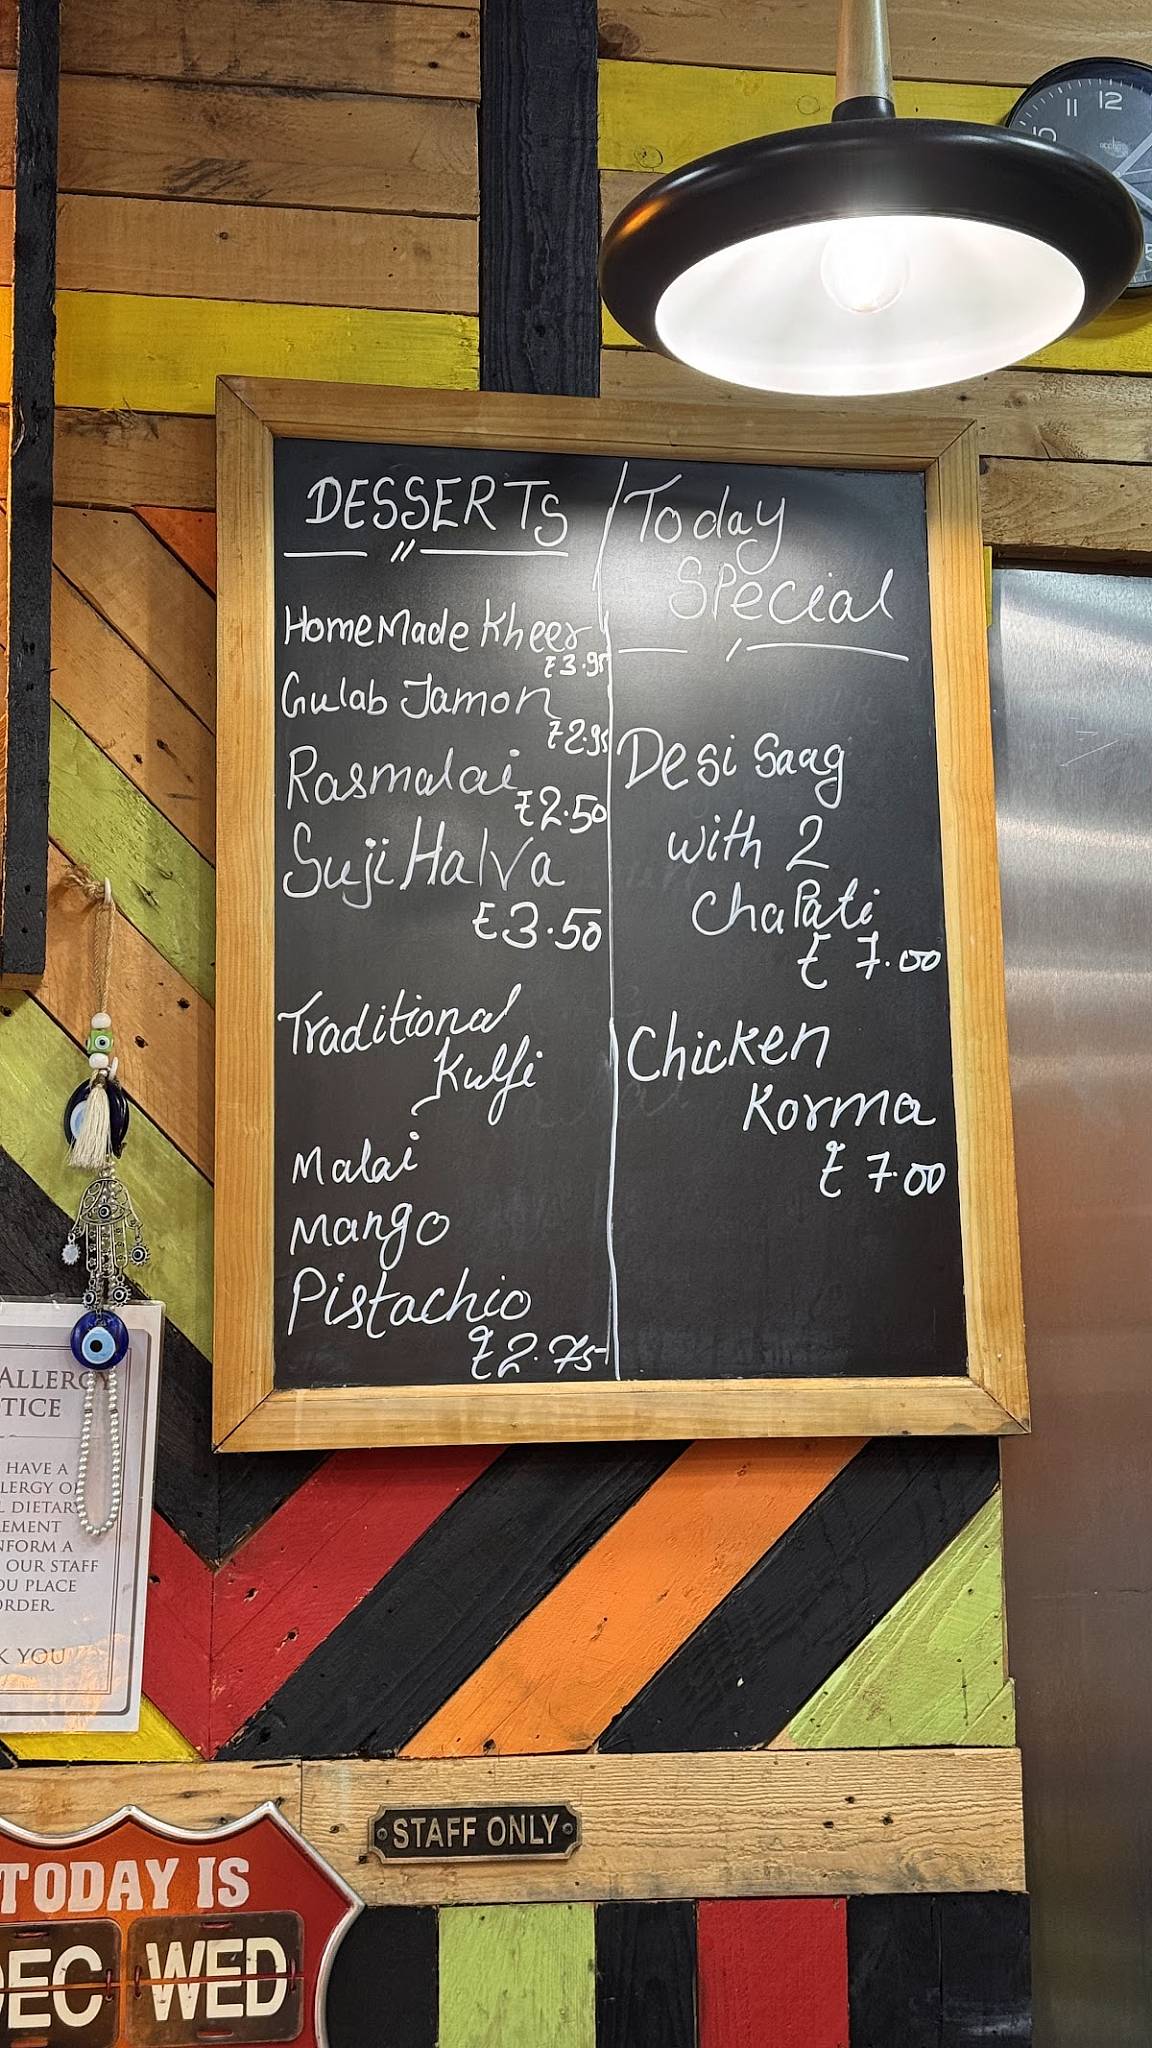 DESSERTS
HomeMade Kheer
£3.95
Gulab Jamon
£2.95
Rasmalai
£2.50
Suji Halva
£3.50
Traditional
Kulfi
Malai
Mango
Pistachio
£2.75
Today
Special
Desi Saag
with 2
ChaPati
£7.00
Chicken
Korma
£7.00
10 11 12
ALLERGY
TICE
HAVE A
LERGY O
L DIETARY
EMENT
NFORM A
OUR STAFF
OU PLACE
ORDER.
K YOU
STAFF ONLY
TODAY IS
DEC WED